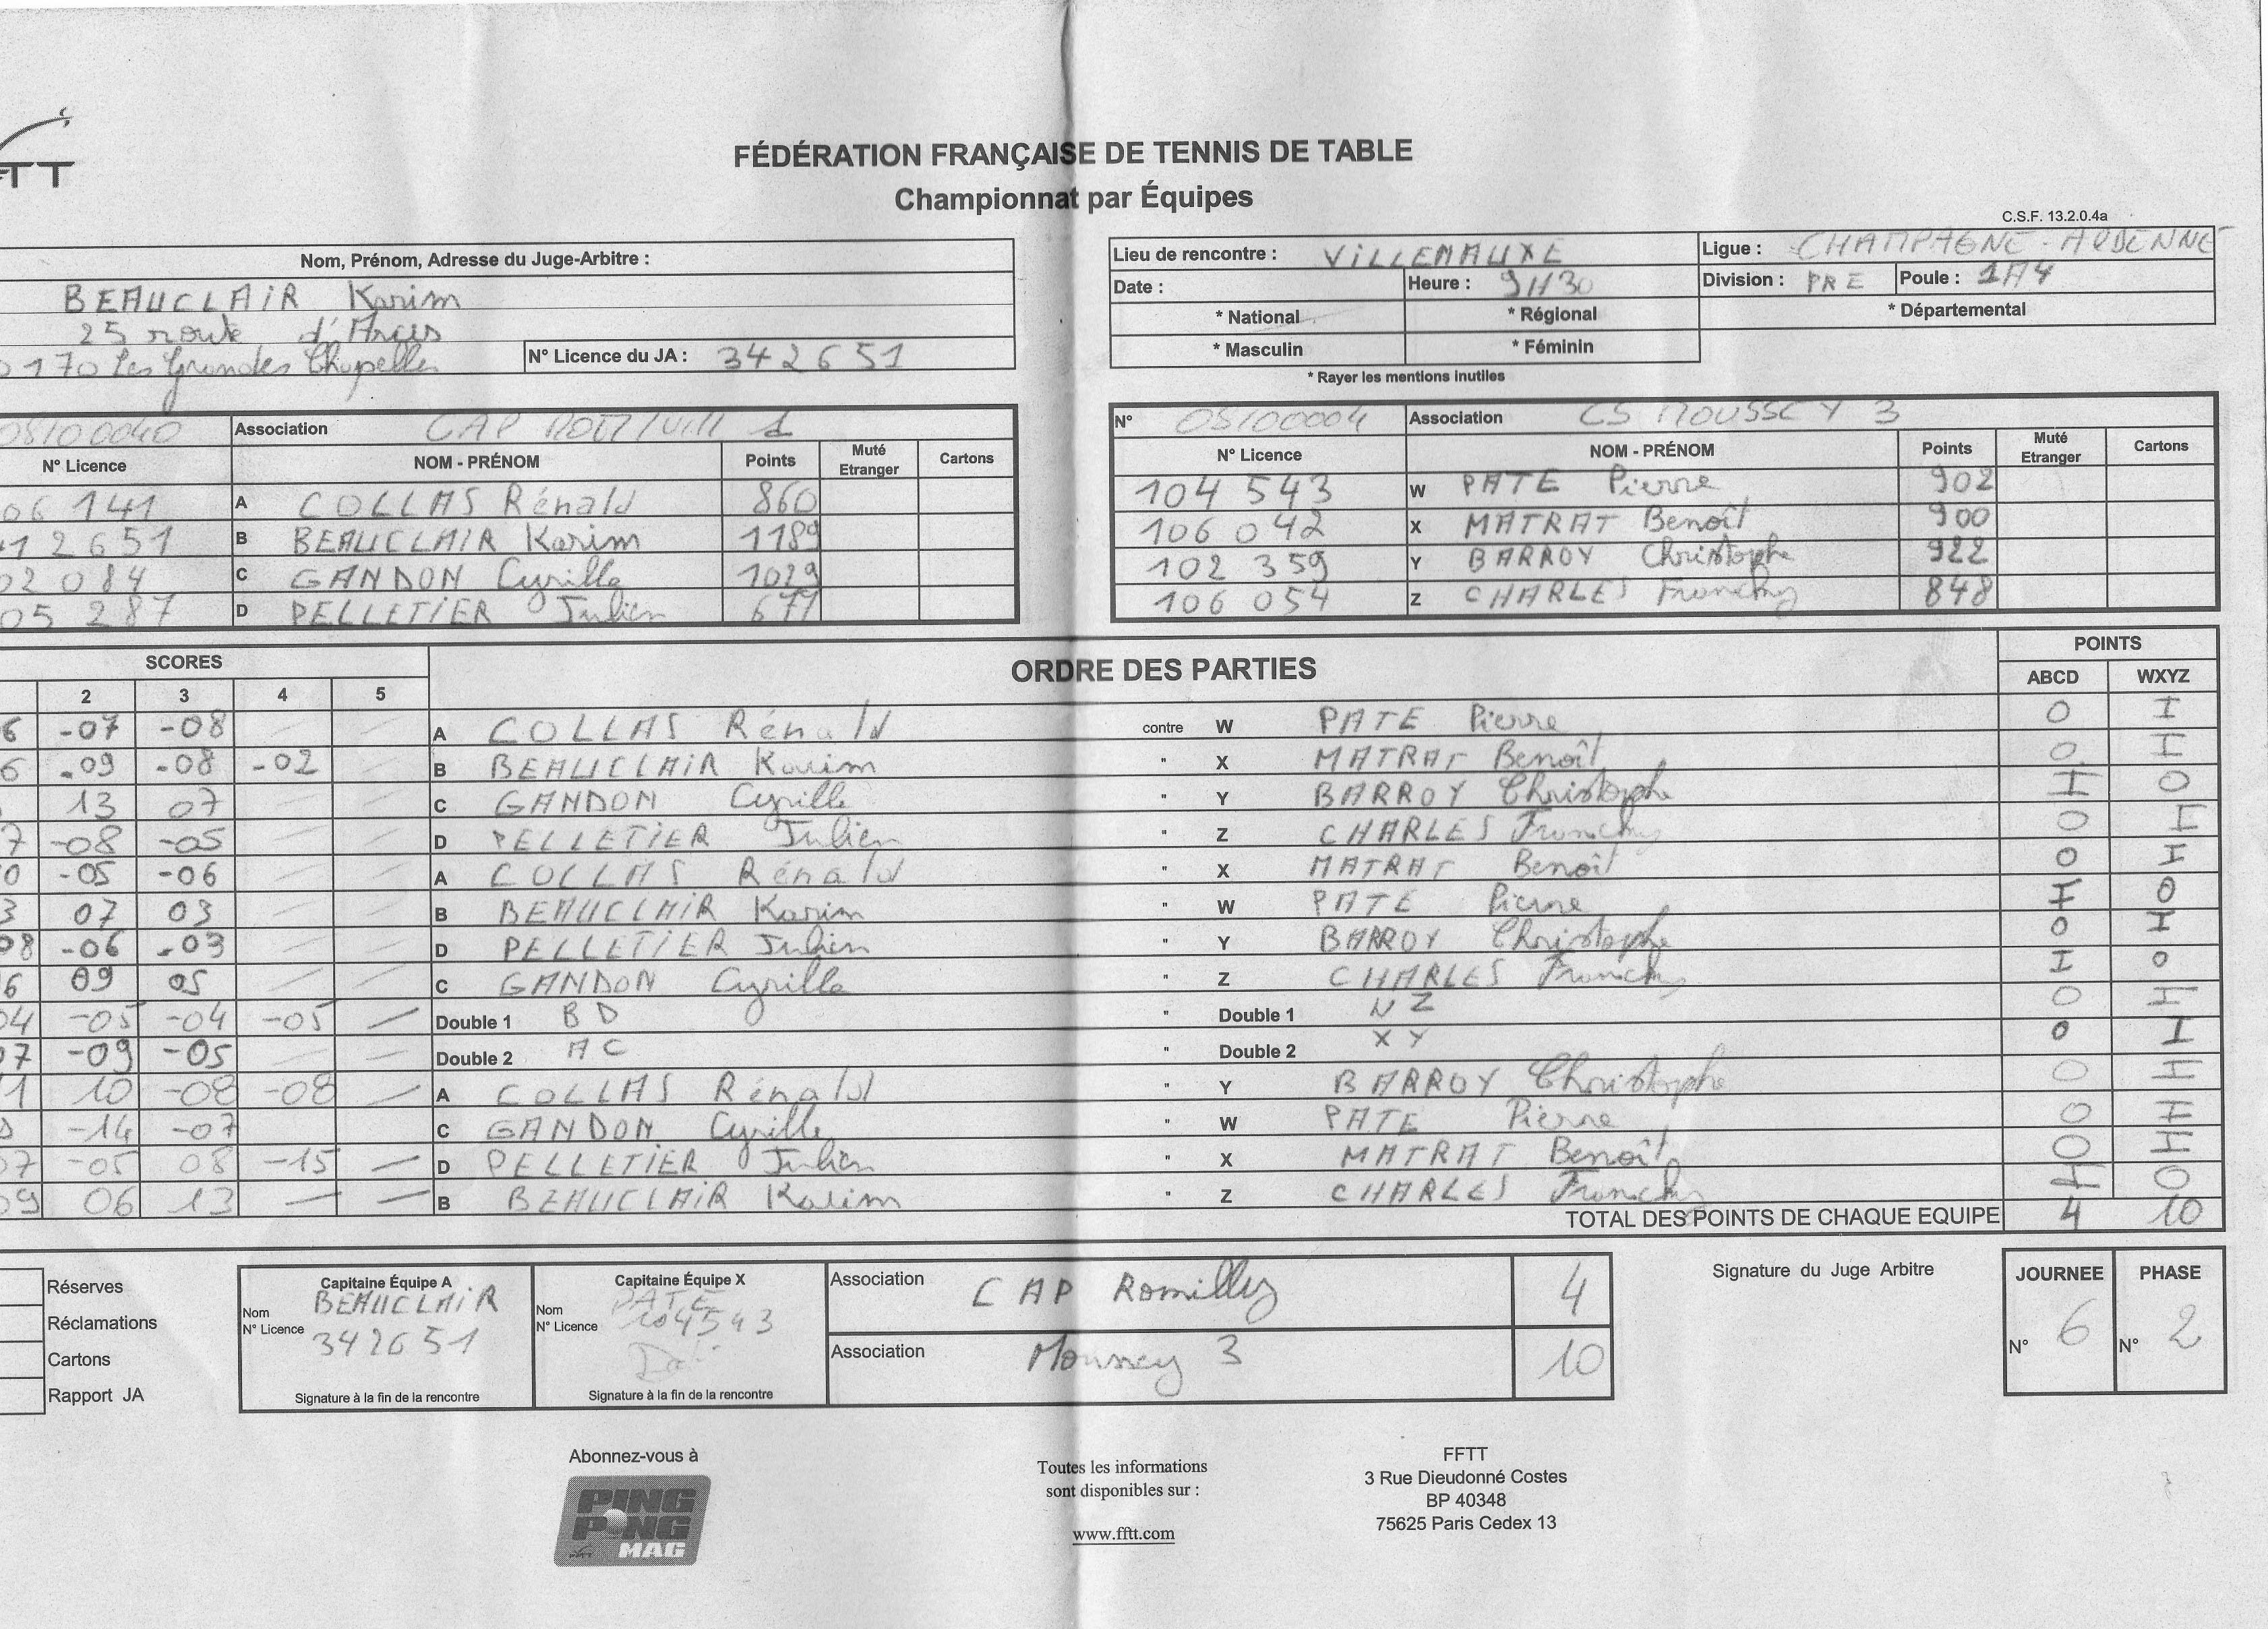 TT
FÉDÉRATION FRANÇAISE DE TENNIS DE TABLE
Championnat par Équipes
C.S.F. 13.2.0.4a
Nom, Prénom, Adresse du Juge-Arbitre :
BEAUCLAIR Karim
25 route d'Arcis
0170 Les Grandes Chapelles N° Licence du JA : 342651
Lieu de rencontre : VILLENAUXE Ligue : CHAMPAGNE-ARDENNE
Date : Heure : 9H30 Division : PRE Poule : 1A4
* National * Régional * Départemental
* Masculin * Féminin
* Rayer les mentions inutiles
08/00040 Association CAP 1
N° Licence NOM - PRÉNOM Points Muté Etranger Cartons
06 141 A COLLAS Rénald 860
12651 B BEAUCLAIR Karim 1189
02 084 C GANDON Cyrille 1029
05 287 D PELLETIER Julien 677
N° 08/00004 Association CS MOUSSEY 3
N° Licence NOM - PRÉNOM Points Muté Etranger Cartons
104 543 W PATE Pierre 902
106 042 X MATRAT Benoît 900
102 359 Y BARROY Christophe 922
106 054 Z CHARLES Franchy 848
SCORES ORDRE DES PARTIES POINTS
2 3 4 5 ABCD WXYZ
6 -07 -08 A COLLAS Rénald contre W PATE Pierre 0 I
6 -09 -08 -02 B BEAUCLAIR Karim " X MATRAT Benoît 0 I
13 07 C GANDON Cyrille " Y BARROY Christophe I 0
7 -08 -05 D PELLETIER Julien " Z CHARLES Franchy 0 I
0 -05 -06 A COLLAS Rénald " X MATRAT Benoît 0 I
3 07 03 B BEAUCLAIR Karim " W PATE Pierre I 0
08 -06 -03 D PELLETIER Julien " Y BARROY Christophe 0 I
6 09 05 C GANDON Cyrille " Z CHARLES Franchy I 0
04 -05 -04 -05 Double 1 BD " Double 1 WZ 0 I
07 -09 -05 Double 2 AC " Double 2 XY 0 I
1 10 -08 -08 A COLLAS Rénald " Y BARROY Christophe 0 I
-14 -07 C GANDON Cyrille " W PATE Pierre 0 I
07 -05 08 -15 D PELLETIER Julien " X MATRAT Benoît 0 I
09 06 13 B BEAUCLAIR Karim " Z CHARLES Franchy I 0
TOTAL DES POINTS DE CHAQUE EQUIPE 4 10
Réserves
Réclamations
Cartons
Rapport JA
Capitaine Équipe A
Nom BEAUCLAIR
N° Licence 342651
Signature à la fin de la rencontre
Capitaine Équipe X
Nom PATE
N° Licence 104543
Signature à la fin de la rencontre
Association CAP Romilly 4
Association Moussey 3 10
Signature du Juge Arbitre
JOURNEE PHASE
N° 6 N° 2
Abonnez-vous à
PING PONG MAG
Toutes les informations
sont disponibles sur :
www.fftt.com
FFTT
3 Rue Dieudonné Costes
BP 40348
75625 Paris Cedex 13